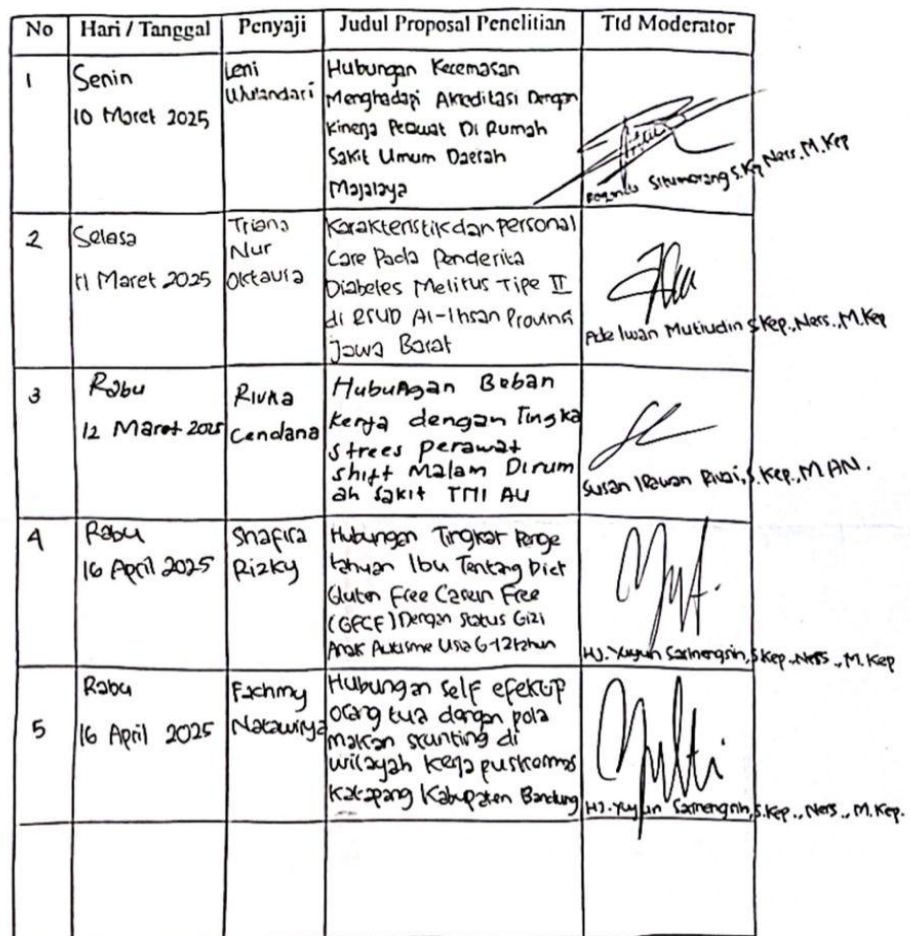 No Hari / Tanggal Penyaji Judul Proposal Penelitian Ttd Moderator
1 Senin 10 Maret 2025
Leni Wulandari
Hubungan Kecemasan
Menghadapi Akreditasi Dengan
Kinerja Perawat Di Rumah
Sakit Umum Daerah
Majalaya
Situmorang S.Kep Ners. M.Kep
2 Selasa 11 Maret 2025
Triana
Nur
Oktavia
Karakteristik dan personal
Care Pada Penderita
Diabetes Melitus Tipe II
di RSUD Al-Ihsan Provinsi
Jawa Barat
Ade Iwan Mutiudin S.Kep., Ners., M.Kep
3 Rabu
12 Maret 2025
Rivka
Cendana
Hubungan Beban
Kerja dengan Tingka
Strees perawat
shift Malam Dirum
ah Sakit TNI AU
Susan Irawan Rivai, S.Kep., MAN.
4 Rabu
16 April 2025
Shafira
Rizky
Hubungan Tingkat Penge
tahuan Ibu Tentang Diet
Gluten Free Casein Free
(GFCF) Dengan Status Gizi
Anak Autisme Usia 6-12 tahun
Hj. Yuyun Sarinengsih, S.Kep., Ners., M.Kep
5 Rabu
16 April 2025
Fachmy
Natawirya
Hubungan self efektip
orang tua dengan pola
makan stunting di
wilayah kerja puskesmas
Katapang Kabupaten Bandung
Hj. Yuyun Sarinengsih, S.Kep., Ners., M.Kep.